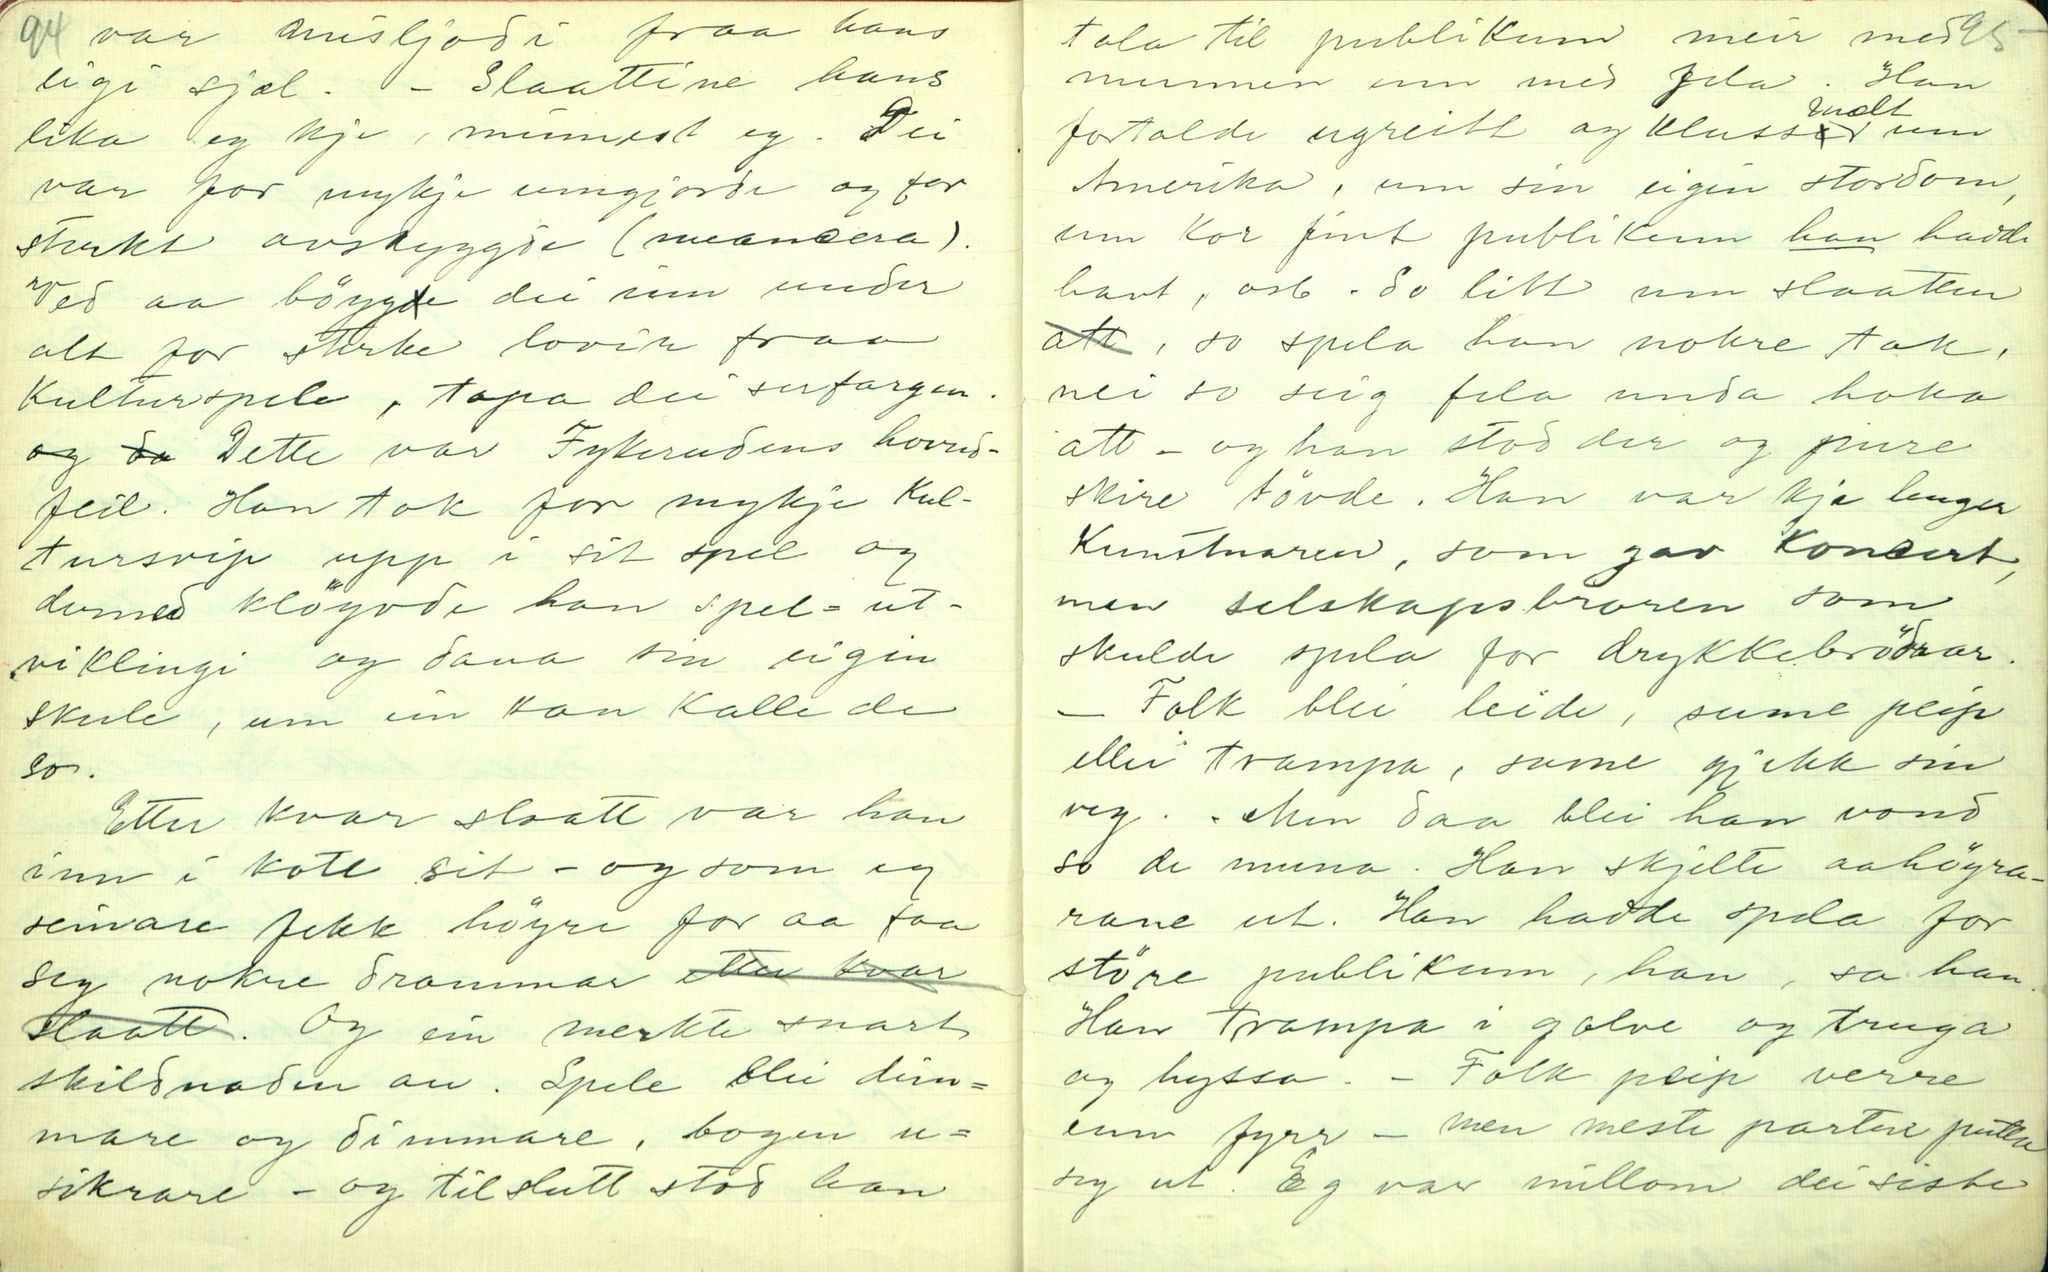 94
var misljod i fraa hans
eigi sjæl. - Slaattine hans
lika eg kje, minnest eg. Dei
var for mykje umgjorde og for
sterkt avskyggde (nuancera).
Ved aa böygde dei inn under
alt for sterke lovir fraa
Kulturspele, tapa dei serfargen.
og da Dette var Fykerudens hovud-
feil. Han tok for mykje Kul-
tursvip upp i sit spel og
dermed klöyvde han spel=ut-
viklingi og dana sin eigin
skule, um ein kan kalle de
so.
Etter kvar slaatt var han
inn i kote sit - og som eg
seinare fekk höyre for aa faa
seg nokre drammar etter kvar
slaatt. Og ein merkte snart
skildnaden au. Spele blei dim=
mare og dimmare, bogen u=
sikrare - og tilslutt stod han
95
tala til publikum meir med
munnen enn med fela. Han
fortalde ugreitt og klussudlt um
Amerika, um sin eigin stordom,
um kor fint publikum han hadde
havt, osb. So litt um slaatten
att, so spela han nokre tak,
nei so seig fela unda haka
att - og han stod der og pure
skire tövde. Han var kje lenger
Kunstnaren, som gav Koncert,
men selskapsbroren som
skulde spela for drykkebrödrar.
- Folk blei leide, sume peip
ellei trampa, some gjekk sin
veg. - Men daa blei han vond
so de muna. Han skjelte aahöyra-
rane ut. Han hadde spela for
störe publikum, han, sa han.
Han trampa i golve og truga
og hyssa. - Folk peip verre
enn fyrr - men meste parten putla
seg ut. Eg var millom dei siste